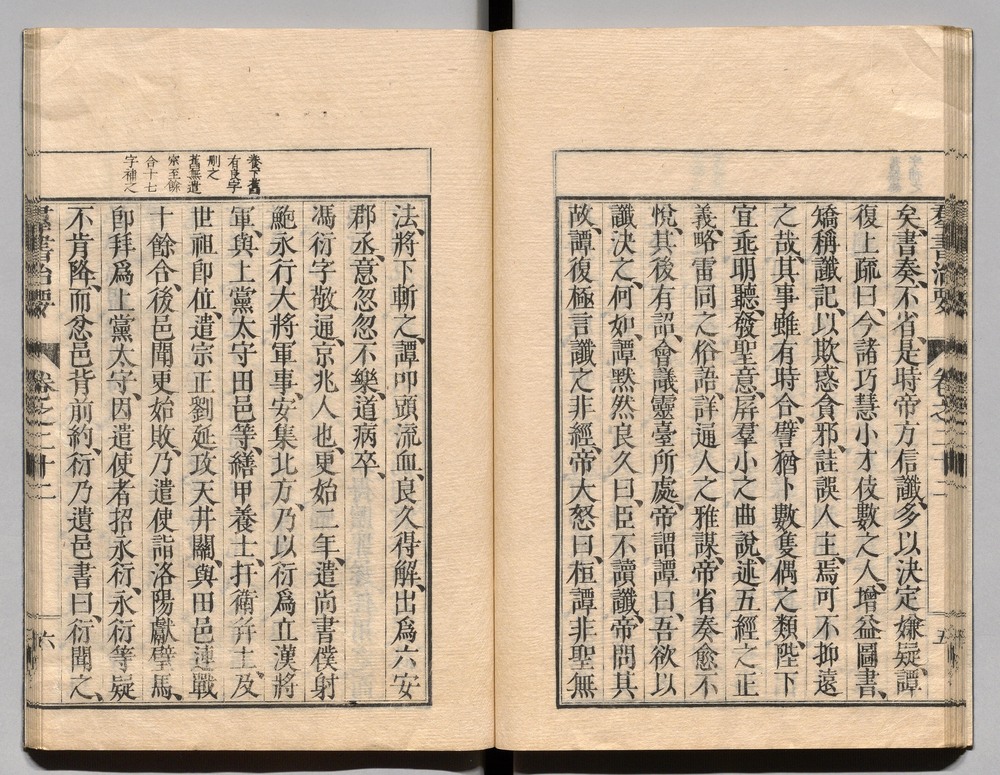 矣、書奏、不省、是時帝方信讖、多以決定嫌疑、譚
復上疏曰、今諸巧慧小才伎數之人、增益圖書、
矯稱讖記、以欺惑貪邪、詿誤人主、焉可不抑遠
之哉、其事雖有時合、譬猶卜數隻偶之類、陛下
宜垂明聽、發聖意、屏羣小之曲說、述五經之正
義、略雷同之俗語、詳通人之雅謀、帝省奏愈不
悅、其後有詔、會議靈臺所處、帝謂譚曰、吾欲以
讖決之、何如、譚默然良久曰、臣不讀讖、帝問其
故、譚復極言讖之非經、帝大怒曰、桓譚非聖無
法、將下斬之、譚叩頭流血、良久得解、出爲六安
郡丞、意忽忽不樂、道病卒、
馮衍字敬通、京兆人也、更始二年、遣尚書僕射
鮑永行大將軍事、安集北方、乃以衍爲立漢將
軍、與上黨太守田邑等、繕甲養士、扞衛幷土、及
世祖卽位、遣宗正劉延攻天井關、與田邑連戰
十餘合、後邑聞更始敗、乃遣使詣洛陽獻璧馬、
卽拜爲上黨太守、因遣使者招永衍、永衍等疑
不肯降、而忿邑背前約、衍乃遺邑書曰、衍聞之、
有良字
刪之
舊無遣
宗至餘
合十七
字補之
羣書治要 卷之二十二 六